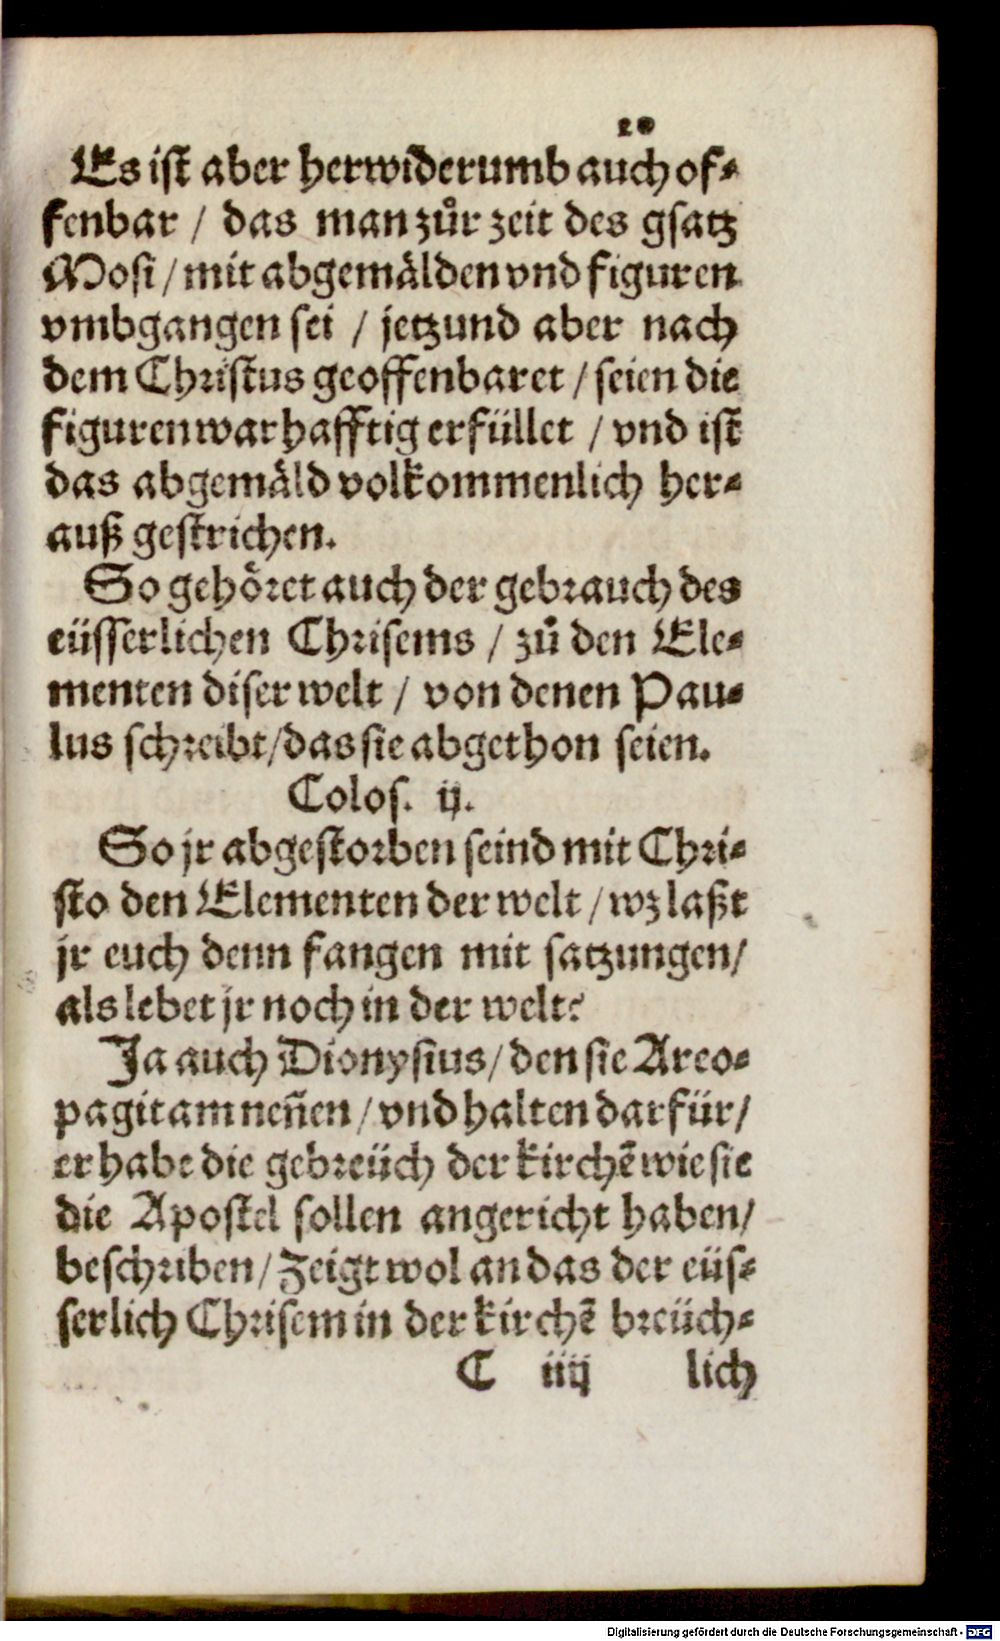 20
Es ist aber herwiderumb auch of⸗
fenbar / das man zůr zeit des gsatz
Mosi / mit abgemälden vnd figuren
vmbgangen sei / jetzund aber nach
dem Christus geoffenbaret / seien die
figuren warhafftig erfüllet / vnd ist
das abgemäld volkommenlich her⸗
auß gestrichen.
So gehöret auch der gebrauch des
eüsserlichen Chrisems / zů den Ele⸗
menten diser welt / von denen Pau⸗
lus schreibt / das sie abgethon seien.
Colos. ij.
So jr abgestorben seind mit Chri⸗
sto den Elementen der welt / wz laßt
jr euch denn fangen mit satzungen /
als lebet jr noch in der welt?
Ja auch Dionysius / den sie Areo⸗
pagitam neñen / vnd halten darfür /
er habe die gebreüch der kirchẽ wie sie
die Apostel sollen angericht haben /
beschriben / Zeigt wol an das der eüs⸗
serlich Chrisem in der kirchẽ breüch⸗
C iiij lich
Digitalisierung gefördert durch die Deutsche Forschungsgemeinschaft - DFG